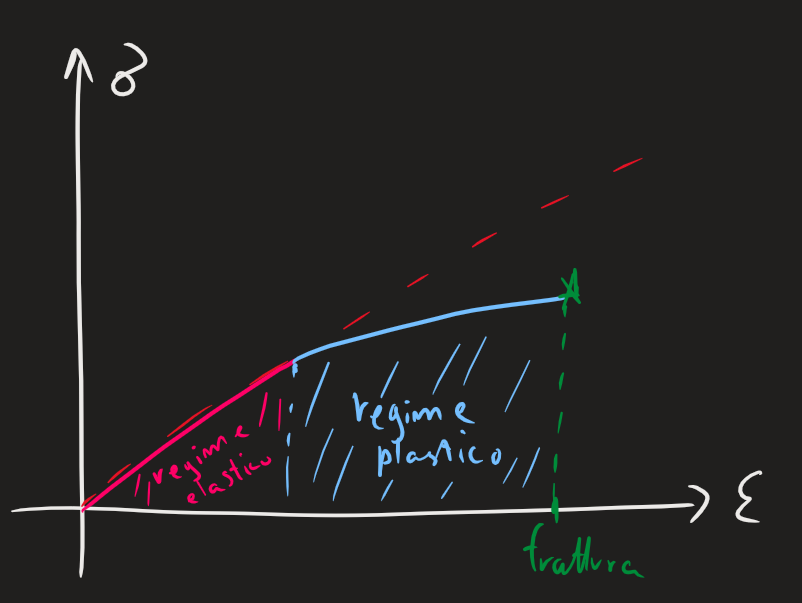 σ
regime
elastico
regime
plastico
ε
frattura